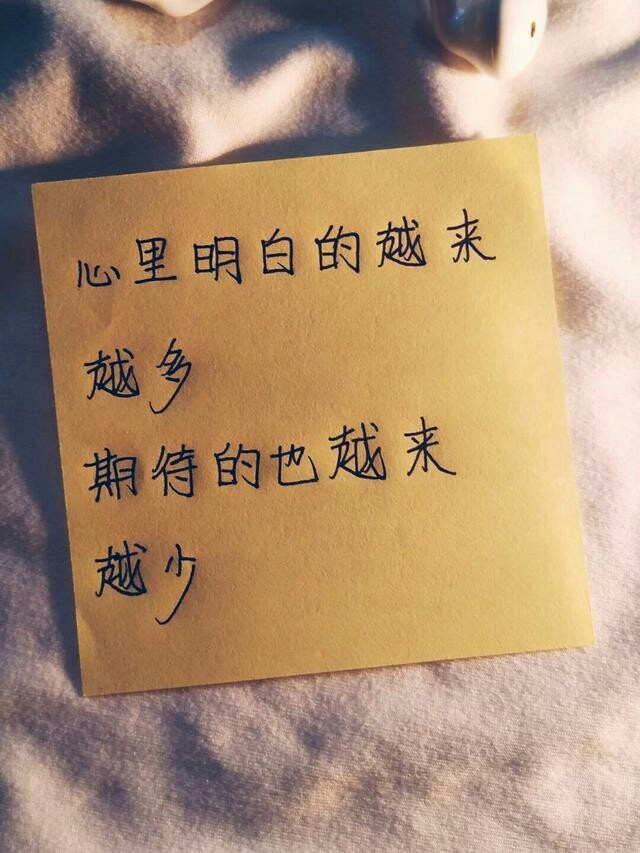 心里明白的越来
越多
期待的也越来
越少